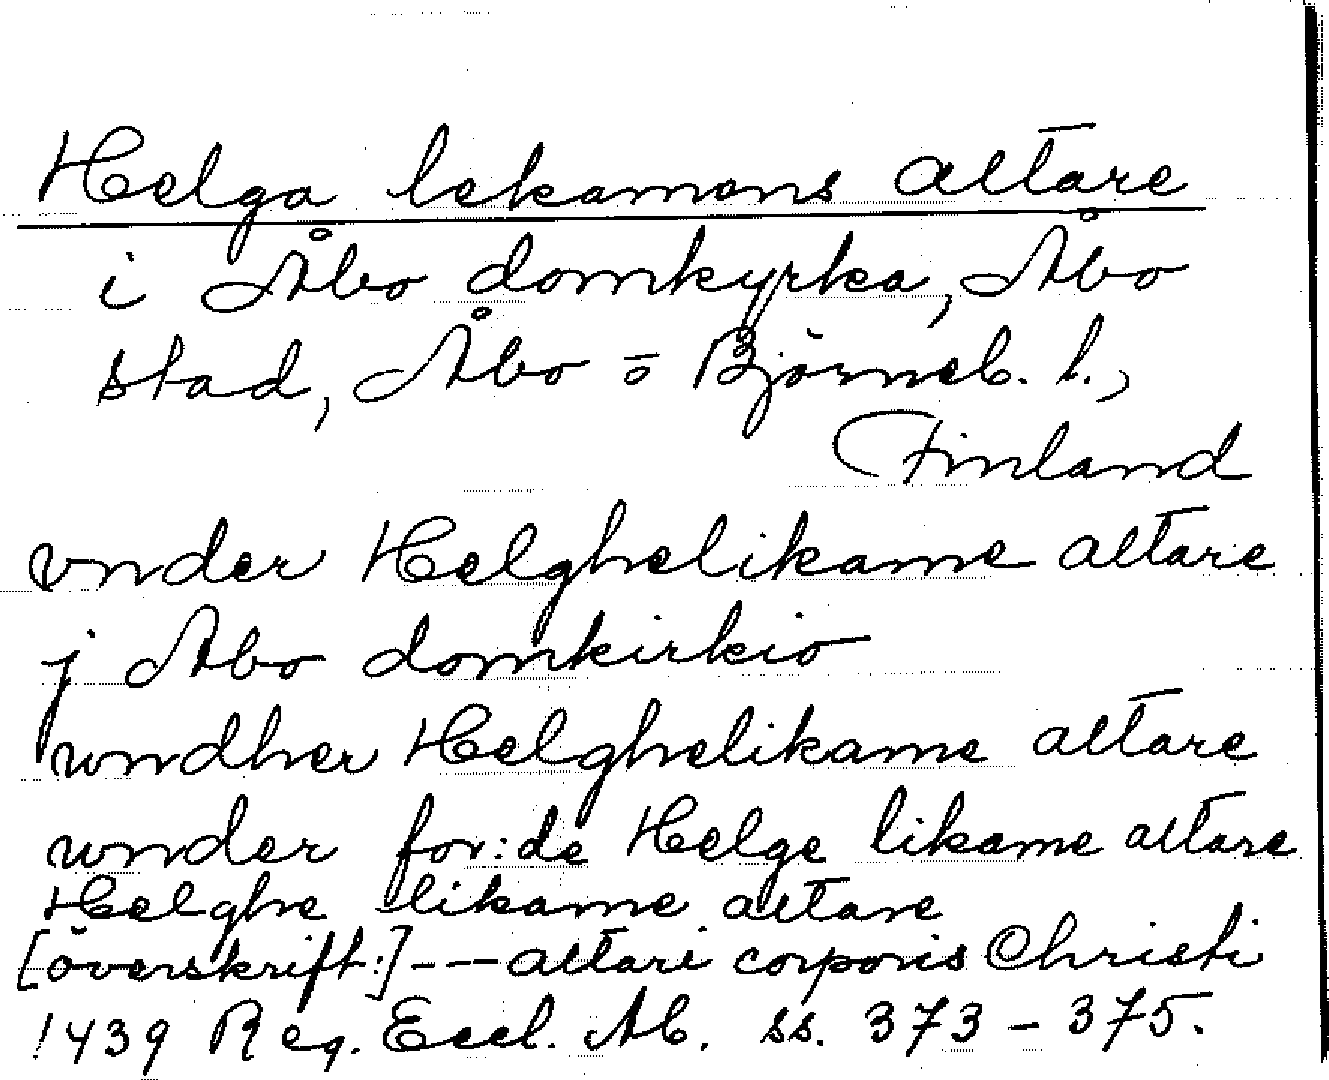 Helga lekamens altare
i Åbo domkyrka, Åbo
stad, Åbo = Björneb. l.,
Finland
vnder Helghelikame altare
j Abo domkirkio
wndher Helghelikame altare
wnder for:de Helge likame altare
Helghe likame altare
[överskrift:] --- altari corporis Christi
1439 Reg. Eccl. Ab. ss. 373 - 375.